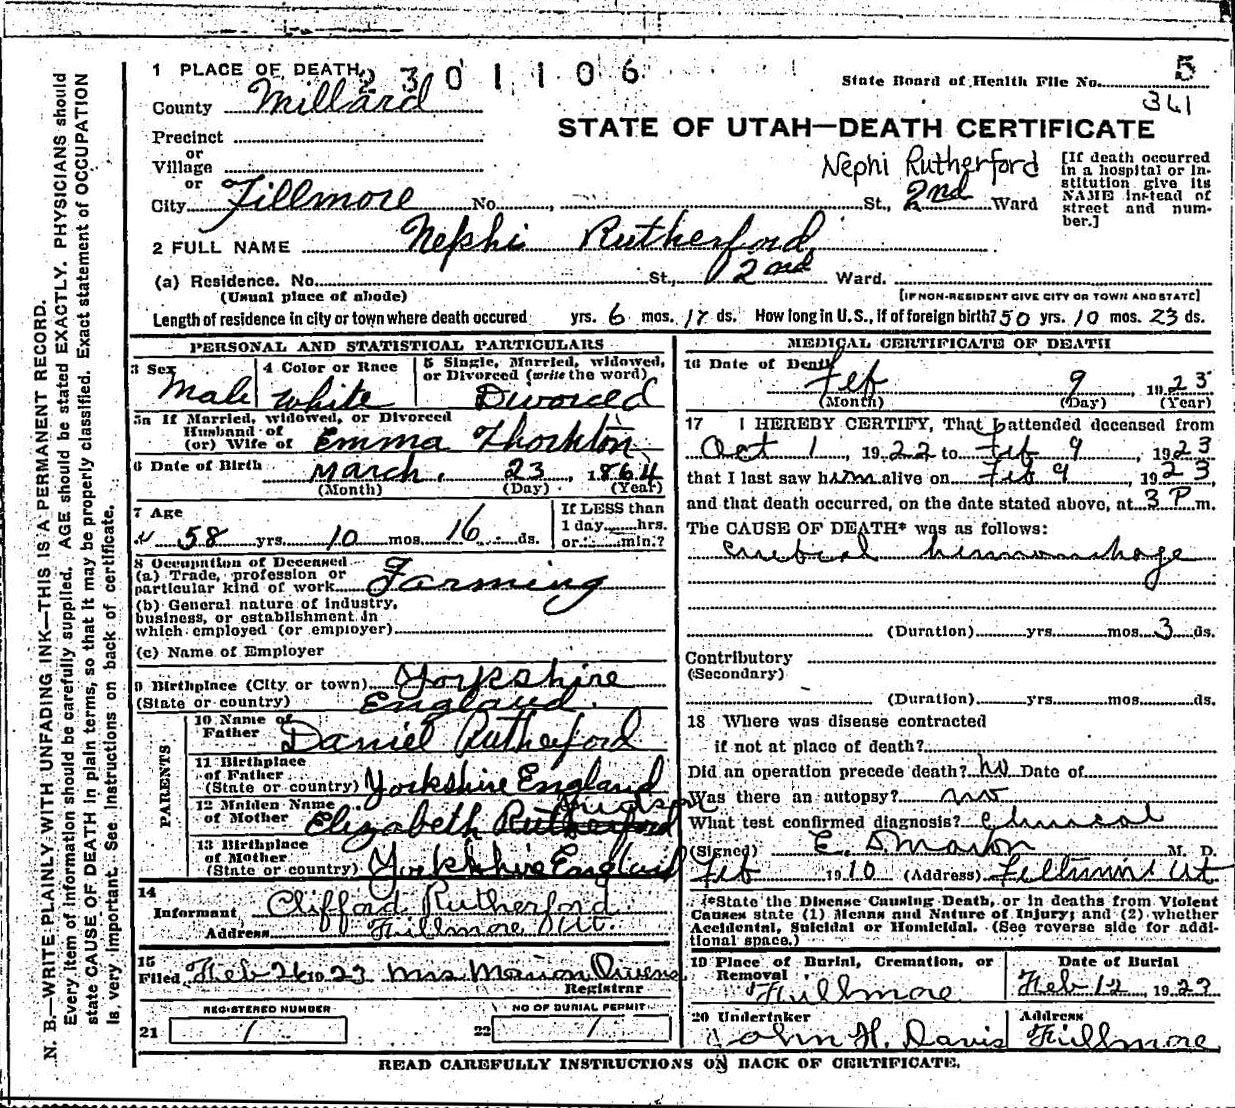 1 PLACE OF DEATH 2301106
State Board of Health File No. 5
361
County Millard
STATE OF UTAH—DEATH CERTIFICATE
Precinct
or
Village
or
Nephi Rutherford
[If death occurred in a hospital or institution give its NAME instead of street and number.]
City Fillmore No. , St., 2nd Ward
2 FULL NAME Nephi Rutherford
(a) Residence. No. St., 2nd Ward.
(Usual place of abode) [IF NON-RESIDENT GIVE CITY OR TOWN AND STATE]
Length of residence in city or town where death occured yrs. 6 mos. 17 ds. How long in U.S., if of foreign birth? 50 yrs. 10 mos. 23 ds.
PERSONAL AND STATISTICAL PARTICULARS
3 Sex Male
4 Color or Race White
5 Single, Married, widowed, or Divorced (write the word) Divorced
5a If Married, widowed, or Divorced
Husband of
(or) Wife of Emma Thornton
6 Date of Birth March 23 1864
(Month) (Day) (Year)
7 Age
58 yrs. 10 mos. 16 ds.
If LESS than
1 day, hrs.
or min.?
8 Occupation of Deceased
(a) Trade, profession or
particular kind of work Farming
(b) General nature of industry,
business, or establishment in
which employed (or employer)
(c) Name of Employer
9 Birthplace (City or town) Yorkshire
(State or country) England.
PARENTS
10 Name of
Father Daniel Rutherford
11 Birthplace
of Father
(State or country) Yorkshire England
12 Maiden Name
of Mother Elizabeth Rutherford
13 Birthplace
of Mother
(State or country) Yorkshire England
14
Informant Clifford Rutherford
Address Fillmore Ut.
15
Filed Feb 26 1923 Mrs Marion Owens
Registrar
REGISTERED NUMBER
21 1
NO OF BURIAL PERMIT
22 1
MEDICAL CERTIFICATE OF DEATH
16 Date of Death
Feb 9 , 1923
(Month) (Day) (Year)
17 I HEREBY CERTIFY, That I attended deceased from
Oct 1 , 1922 to Feb 9 , 1923
that I last saw him alive on Feb 9 , 1923
and that death occurred, on the date stated above, at 3 P m.
The CAUSE OF DEATH* was as follows:
cerebral hemorrhage
(Duration) yrs. mos. 3 ds.
Contributory
(Secondary)
(Duration) yrs. mos. ds.
18 Where was disease contracted
if not at place of death?
Did an operation precede death? no Date of
Was there an autopsy? no
What test confirmed diagnosis? clinical
(Signed) E. D. M. D.
Feb 1910 (Address) Fillmore Ut
*State the Disease Causing Death, or in deaths from Violent
Causes state (1) Means and Nature of Injury; and (2) whether
Accidental, Suicidal or Homicidal. (See reverse side for addi-
tional space.)
19 Place of Burial, Cremation, or
Removal
Fillmore
Date of Burial
Feb 12 , 1923
20 Undertaker
John H. Davis
Address
Fillmore
READ CAREFULLY INSTRUCTIONS ON BACK OF CERTIFICATE.
N. B.—WRITE PLAINLY WITH UNFADING INK—THIS IS A PERMANENT RECORD.
Every item of information should be carefully supplied. AGE should be stated EXACTLY. PHYSICIANS should
state CAUSE OF DEATH in plain terms, so that it may be properly classified. Exact statement of OCCUPATION
is very important. See instructions on back of certificate.